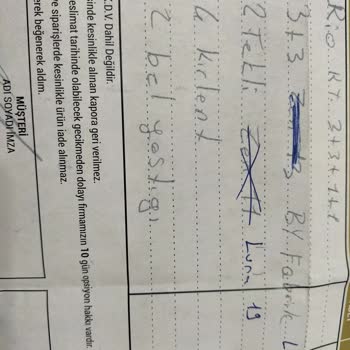 Rio RT. 3+3+1+1
3+3 B.Y. Fabrik L
2 Tekli Luna 19
4 Kırlent
2 bel yastığı
.D.V. Dahil Değildir.
sinde kesinlikle alınan kapora geri verilmez.
eslimat tarihinde olabilecek gecikmeden dolayı firmamızın 10 gün opsiyon hakkı vardır.
re siparişlerde kesinlikle ürün iade alınmaz.
erek beğenerek aldım.
MÜŞTERİ
ADI SOYADI İMZA